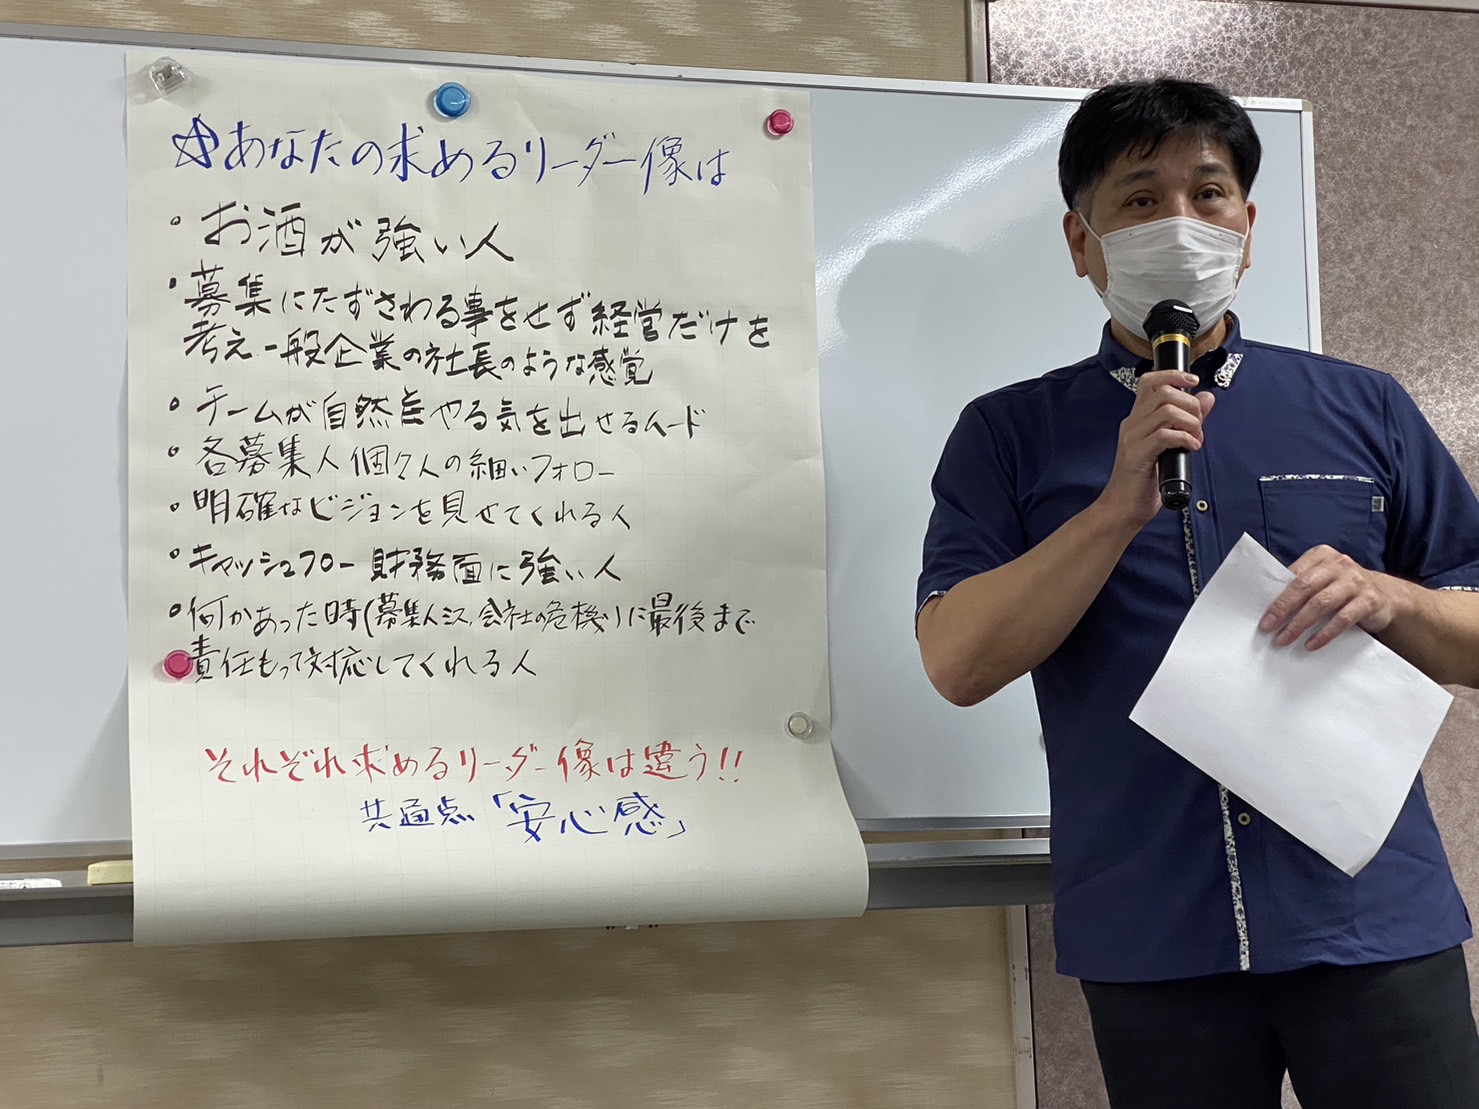 ☆あなたの求めるリーダー像は
・お酒が強い人
・募集にたずさわる事をせず経営だけを
考え一般企業の社長のような感覚
・チームが自然とやる気を出せるムード
・各募集人個々人の細いフォロー
・明確なビジョンを見せてくれる人
・キャッシュフロー財務面に強い人
・何かあった時(募集人ミス、会社の危機)に最後まで
責任もって対応してくれる人
それぞれ求めるリーダー像は違う!!
共通点「安心感」